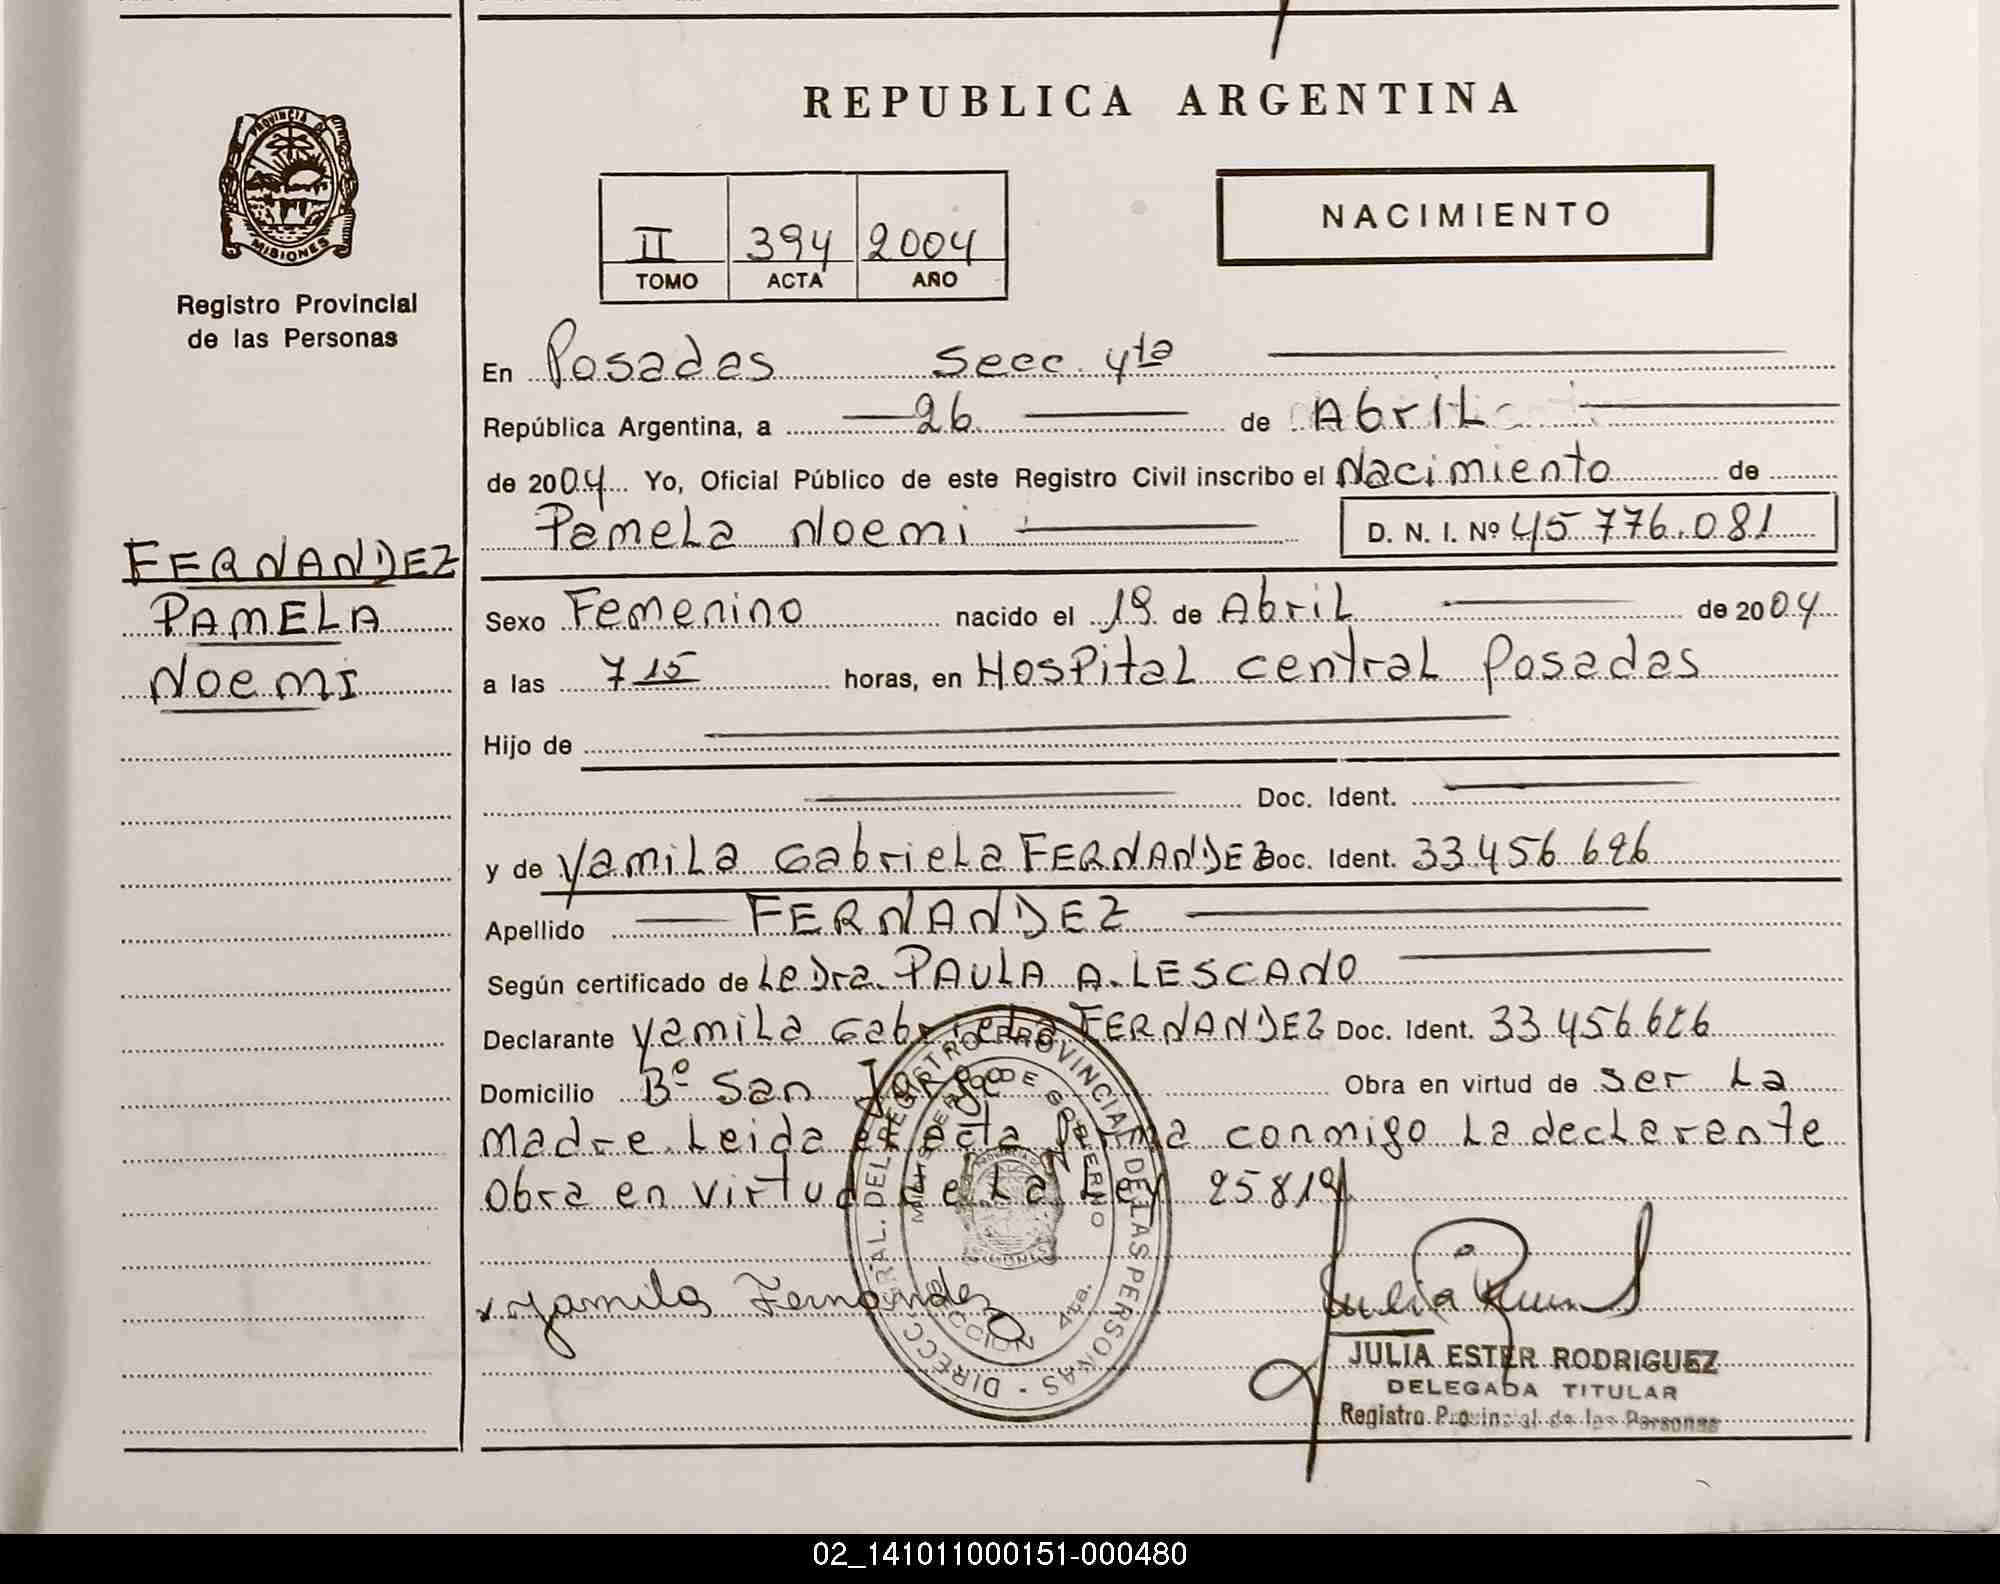 REPUBLICA ARGENTINA
PROVINCIA DE
MISIONES
Registro Provincial
de las Personas
NACIMIENTO
II 394 2004
TOMO ACTA AÑO
En Posadas Secc. 4ta
República Argentina, a 26 de Abril
de 2004 Yo, Oficial Público de este Registro Civil inscribo el Nacimiento de
Pamela Noemi D. N. I. Nº 45.776.081
FERNANDEZ
PAMELA
Noemi
Sexo Femenino nacido el 19 de Abril de 2004
a las 7 15 horas, en Hospital central Posadas
Hijo de
Doc. Ident.
y de Yamila Gabriela FERNANDEZ Doc. Ident. 33.456.626
Apellido FERNANDEZ
Según certificado de La Dra. PAULA A. LESCANO
Declarante Yamila Gabriela FERNANDEZ Doc. Ident. 33.456.626
Domicilio Bº San Jorge Obra en virtud de ser la
madre. Leida el acta firma conmigo la declarente
Obra en virtud de la Ley 25819
DIRECC. GRAL. DEL REGISTRO PROVINCIAL DE LAS PERSONAS
MINISTERIO DE GOBIERNO
SECCION 4ta.
x Yamila Fernández
JULIA ESTER RODRIGUEZ
DELEGADA TITULAR
Registro Provincial de las Personas
02_141011000151-000480